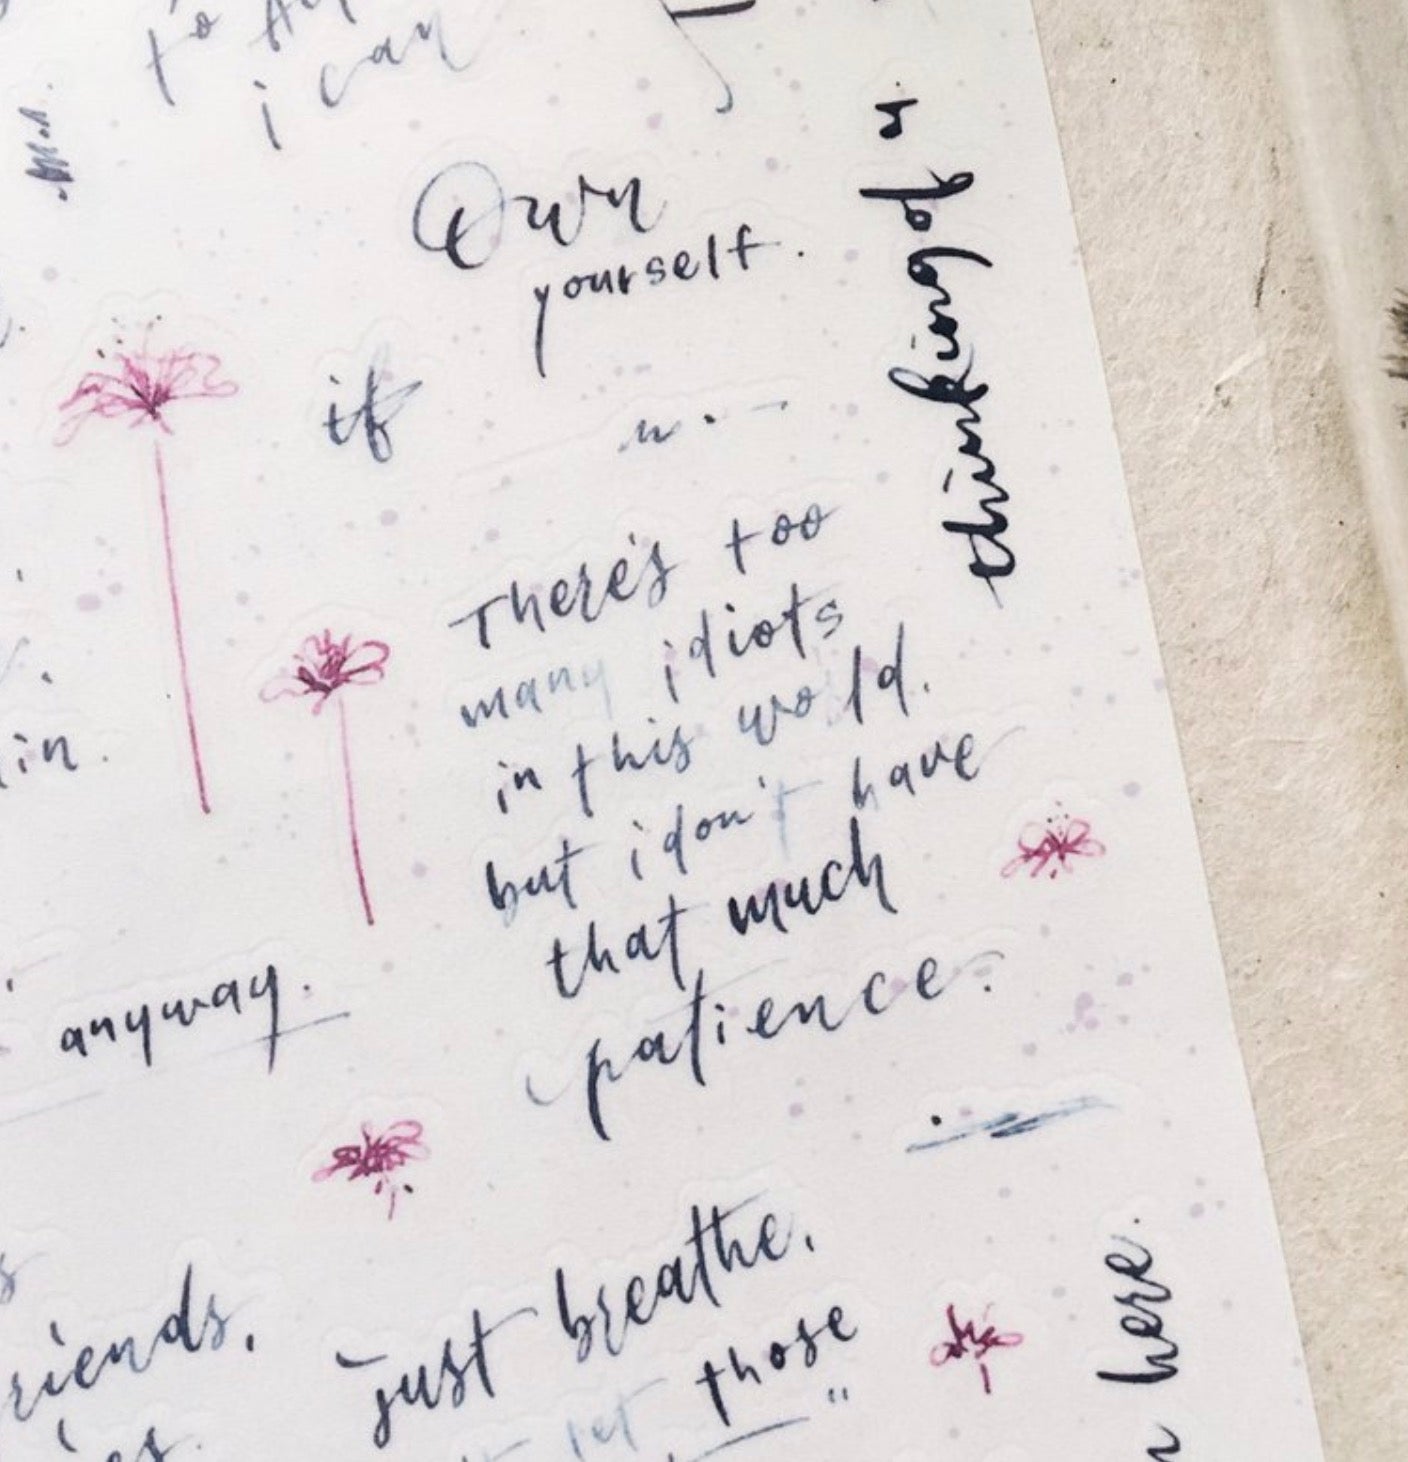 to
i can
Own
yourself.
thinking of u
if
There's too
many idiots
in this world.
but i don't have
that much
patience.
in.
anyway.
just breathe.
riends,
let those
here.